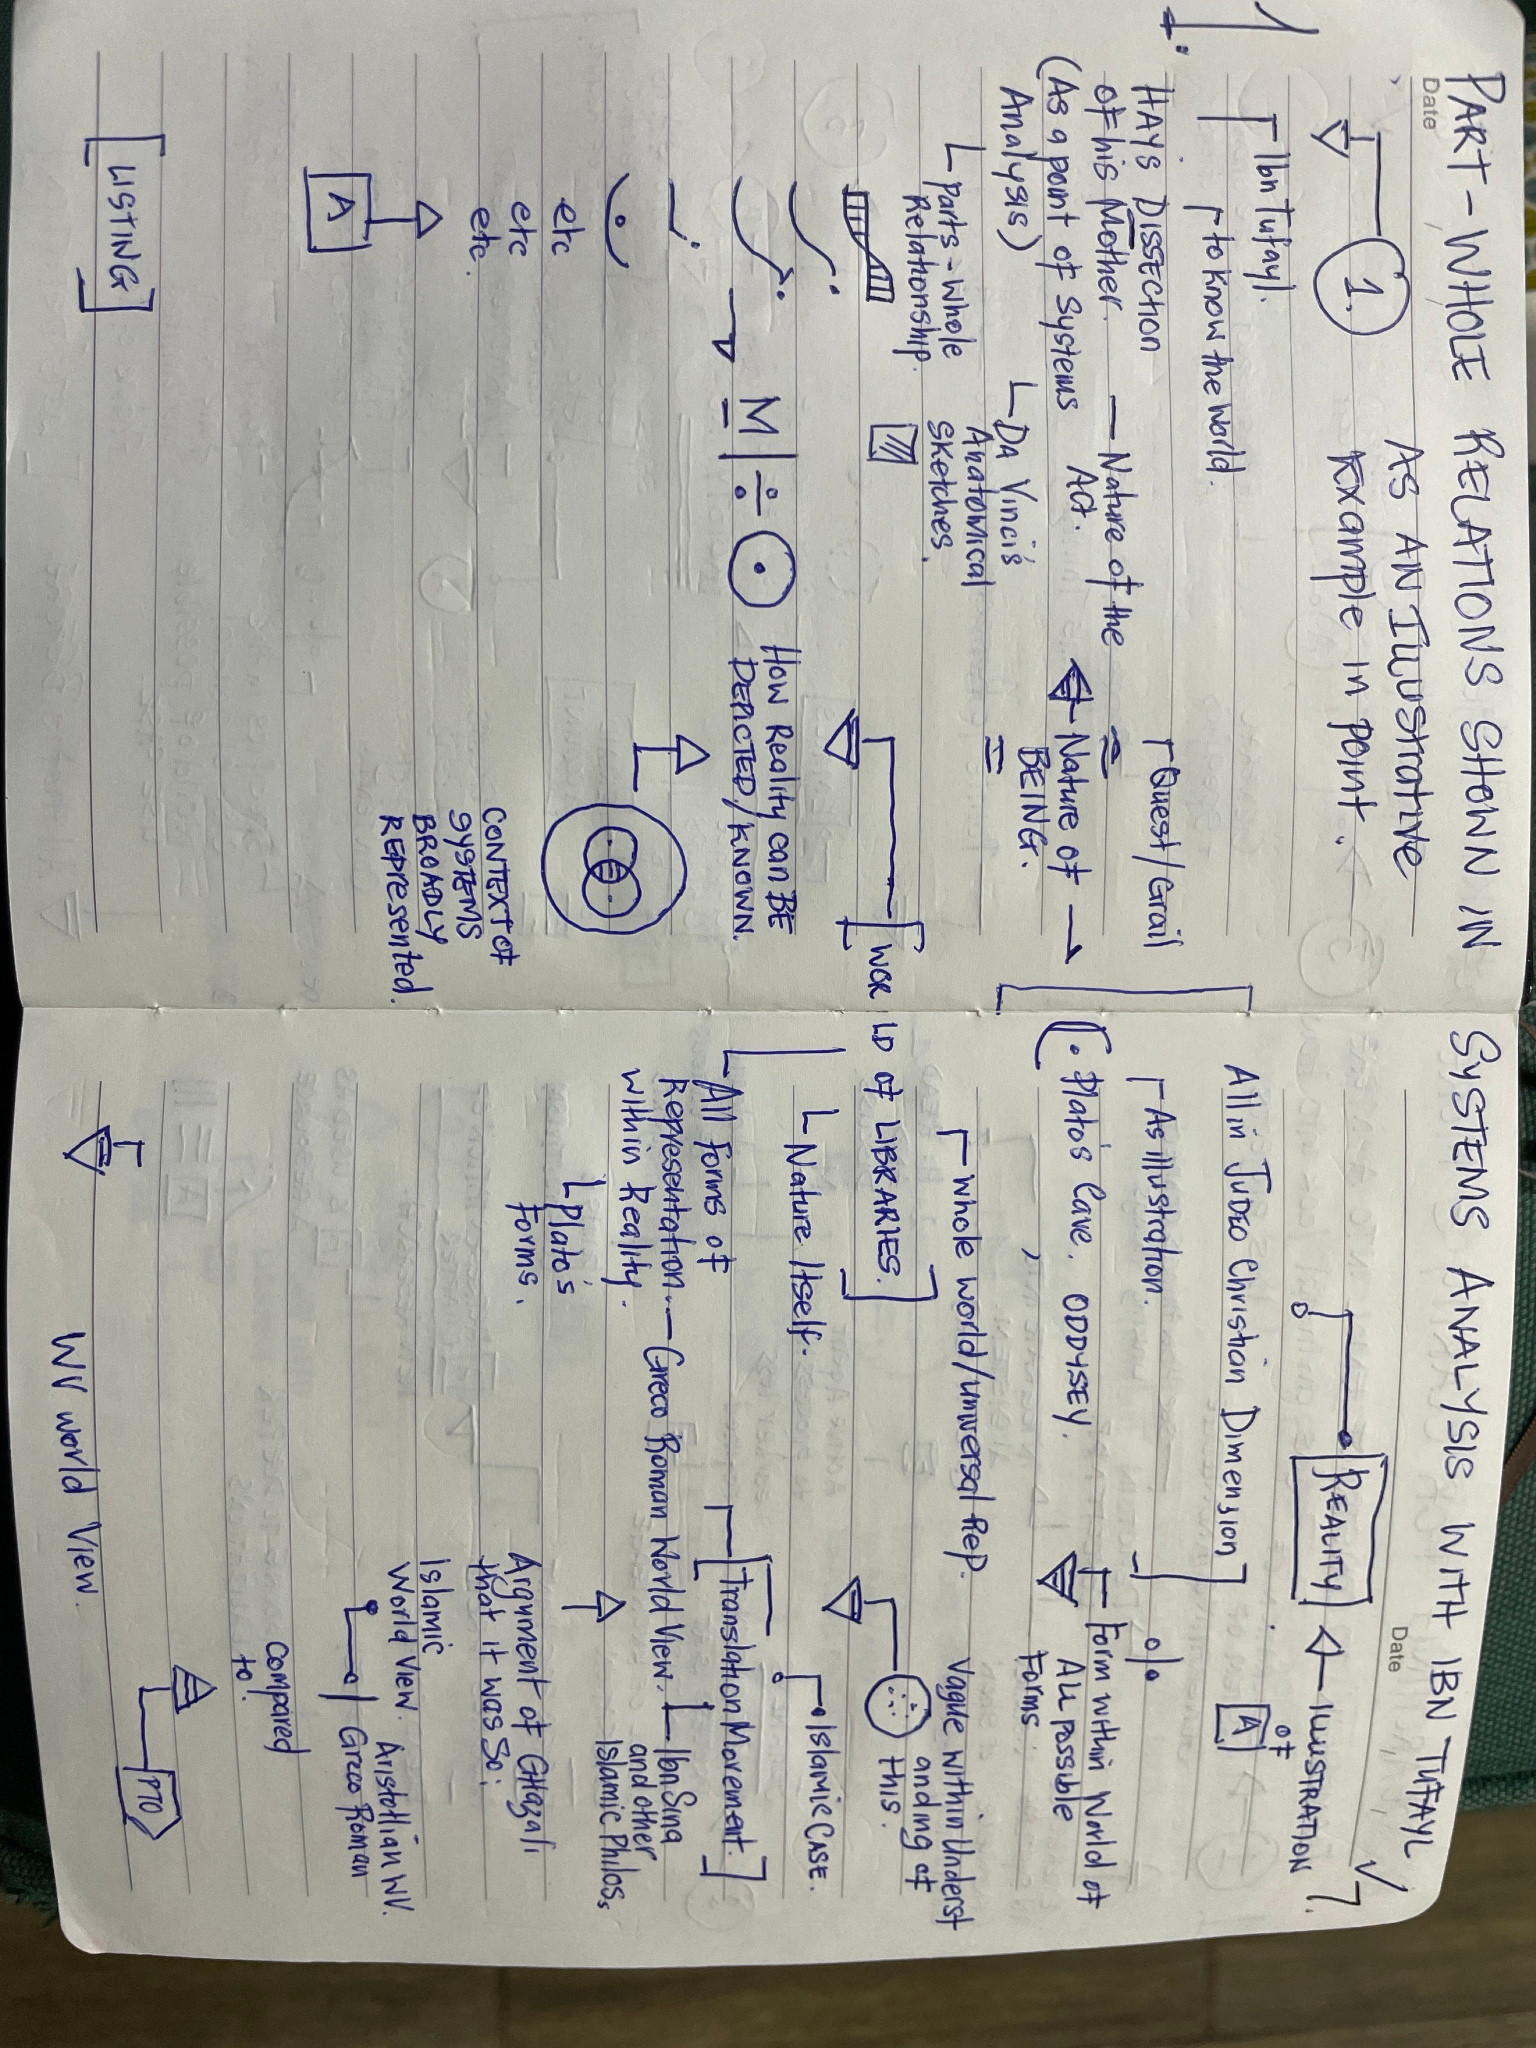 PART-WHOLE RELATIONS SHOWN IN SYSTEMS ANALYSIS WITH IBN TUFAYL
Date
AS AN ILLUSTRATIVE
1.
Example in point.
Ibn Tufayl.
to know the world.
HAYS DISSECTION
of his Mother.
(As a point of Systems
Analysis)
Parts-Whole
Relationship.
Nature of the
Act.
Da Vinci's
Anatomical
Sketches.
Quest/Grail
Nature of
BEING.
M
How Reality can BE
DEPICTED/KNOWN.
etc
etc
etc.
CONTEXT OF
SYSTEMS
BROADLY
REPRESENTED.
A
[LISTING]
Date
REALITY
ILLUSTRATION
of
A
All in JUDEO Christian Dimension]
As illustration.
• Plato's Cave. ODDYSEY.
Form within World of
ALL possible
Forms.
whole world/universal Rep.
[WORLD OF LIBRARIES.]
Vague within Underst
anding of
this.
Nature Itself.
Islamic CASE.
All forms of
Representation. — Greco Roman World View.
within Reality.
Plato's
Forms.
[Translation Movement.]
Ibn Sina
and other
Islamic Philos,
Argument of GHazali
that it was So;
Islamic
World View. Aristotlian WV.
Greco Roman
compared
to.
PTO
WV world View.